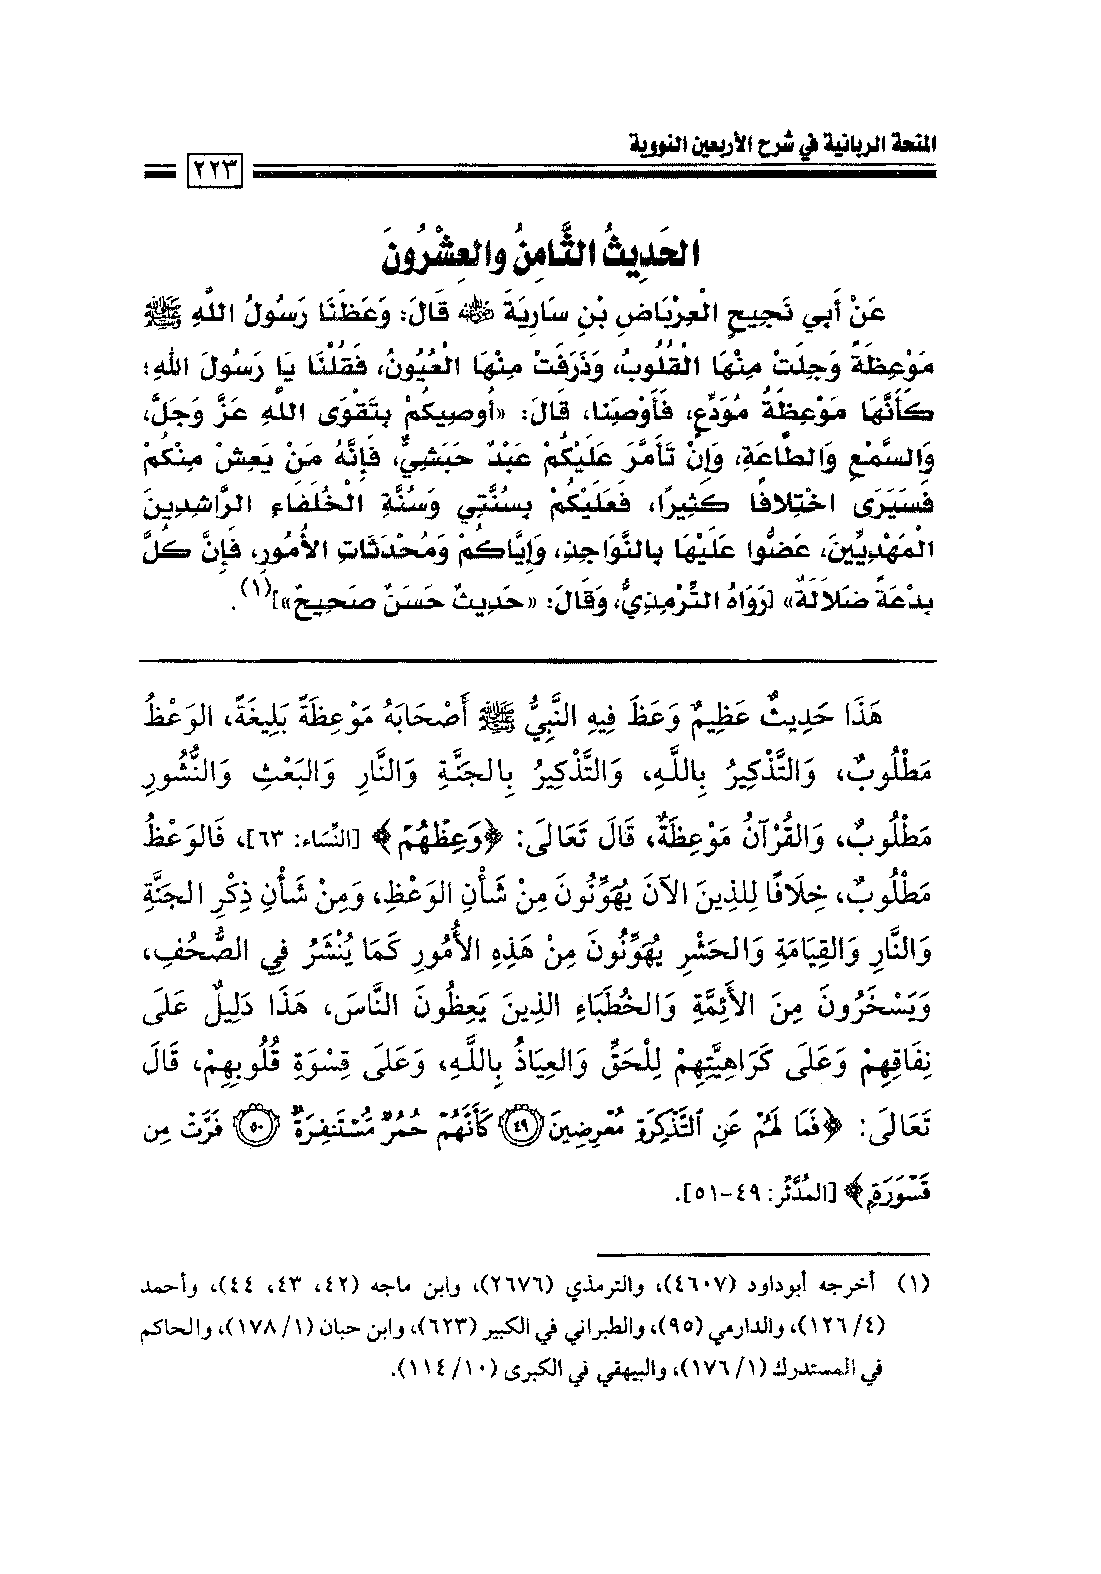 المنحة الربانية في شرح الأربعين النووية
٢٢٣
الحَدِيثُ الثَّامِنُ والعِشْرُونَ
عَنْ أَبِي نَجِيحٍ الْعِرْبَاضِ بْنِ سَارِيَةَ رضي الله عنه قَالَ: وَعَظَنَا رَسُولُ اللَّهِ ﷺ
مَوْعِظَةً وَجِلَتْ مِنْهَا الْقُلُوبُ، وَذَرَفَتْ مِنْهَا الْعُيُونُ، فَقُلْنَا يَا رَسُولَ اللهِ؛
كَأَنَّهَا مَوْعِظَةُ مُوَدِّعٍ، فَأَوْصِنَا، قَالَ: «أُوصِيكُمْ بِتَقْوَى اللَّهِ عَزَّ وَجَلَّ،
وَالسَّمْعِ وَالطَّاعَةِ، وَإِنْ تَأَمَّرَ عَلَيْكُمْ عَبْدٌ حَبَشِيٌّ، فَإِنَّهُ مَنْ يَعِشْ مِنْكُمْ
فَسَيَرَى اخْتِلَافًا كَثِيرًا، فَعَلَيْكُمْ بِسُنَّتِي وَسُنَّةِ الْخُلَفَاءِ الرَّاشِدِينَ
الْمَهْدِيِّينَ، عَضُّوا عَلَيْهَا بِالنَّوَاجِذِ، وَإِيَّاكُمْ وَمُحْدَثَاتِ الأُمُورِ، فَإِنَّ كُلَّ
بِدْعَةٍ ضَلَالَةٌ» [رَوَاهُ التِّرْمِذِيُّ، وَقَالَ: «حَدِيثٌ حَسَنٌ صَحِيحٌ»](١).
هَذَا حَدِيثٌ عَظِيمٌ وَعَظَ فِيهِ النَّبِيُّ ﷺ أَصْحَابَهُ مَوْعِظَةً بَلِيغَةً، الوَعْظُ
مَطْلُوبٌ، وَالتَّذْكِيرُ بِاللَّهِ، وَالتَّذْكِيرُ بِالجَنَّةِ وَالنَّارِ وَالبَعْثِ وَالنُّشُورِ
مَطْلُوبٌ، وَالقُرْآنُ مَوْعِظَةٌ، قَالَ تَعَالَى: ﴿وَعِظْهُمْ﴾ [النِّسَاء: ٦٣]، فَالوَعْظُ
مَطْلُوبٌ، خِلَافًا لِلذِينَ الآنَ يُهَوِّنُونَ مِنْ شَأْنِ الوَعْظِ، وَمِنْ شَأْنِ ذِكْرِ الجَنَّةِ
وَالنَّارِ وَالقِيَامَةِ وَالحَشْرِ يُهَوِّنُونَ مِنْ هَذِهِ الأُمُورِ كَمَا يُنْشَرُ فِي الصُّحُفِ،
وَيَسْخَرُونَ مِنَ الأَئِمَّةِ وَالخُطَبَاءِ الذِينَ يَعِظُونَ النَّاسَ، هَذَا دَلِيلٌ عَلَى
نِفَاقِهِمْ وَعَلَى كَرَاهِيَّتِهِمْ لِلْحَقِّ وَالعِيَاذُ بِاللَّهِ، وَعَلَى قِسْوَةِ قُلُوبِهِمْ، قَالَ
تَعَالَى: ﴿فَمَا لَهُمْ عَنِ ٱلتَّذْكِرَةِ مُعْرِضِينَ ٤٩ كَأَنَّهُمْ حُمُرٌ مُّسْتَنفِرَةٌ ٥٠ فَرَّتْ مِن
قَسْوَرَةٍ﴾ [المُدَّثِّر: ٤٩-٥١].
(١) أخرجه أبوداود (٤٦٠٧)، والترمذي (٢٦٧٦)، وابن ماجه (٤٢، ٤٣، ٤٤)، وأحمد
(٤/١٢٦)، والدارمي (٩٥)، والطبراني في الكبير (٦٢٣)، وابن حبان (١/١٧٨)، والحاكم
في المستدرك (١/١٧٦)، والبيهقي في الكبرى (١٠/١١٤).